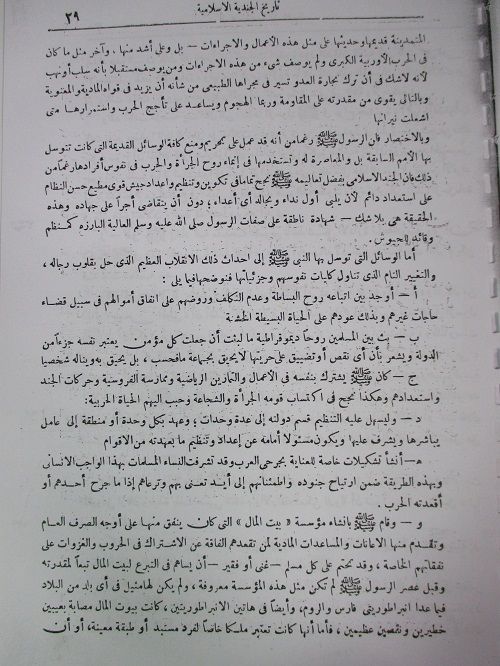 تاريخ الجندية الاسلامية
٢٩
المتمدينة قديمها وحديثها على مثل هذه الاعمال والاجراءات — بل وعلى أشد منها ، وآخر مثل ما كان
فى الحرب الأوربية الكبرى ولم يوصف شىء من هذه الاجراءات ومن يوصف مستقبلا بأنه سلب أو نهب
لأنه لاشك فى أن ترك تجارة العدو تسير فى مجراها الطبيعى من شأنه أن يزيد فى قواه المادية والمعنوية
وبالتالى يقوى من مقدرته على المقاومة وربما الهجوم ويساعد على تأجج الحرب واستمرارها متى
اشعلت نيرانها
وبالاختصار فان الرسول ﷺ رغما من أنه قد عمل على تحريم ومنع كافة الوسائل القديمة التى كانت تتوسل
بها الأمم السابقة بل والمعاصرة له وتستخدمها فى إنماء روح الجرأة والحرب فى نفوس أفرادها رغما من
ذلك فان الجند الاسلامى بفضل تعاليمه ﷺ نجح تماما فى تكوين وتنظيم واعداد جيش قوى مطيع حسن النظام
على استعداد دائم لأن يلبى أول نداء ويجاله أى أعداء ، دون أن يتقاضى أجراً على جهاده وهذه
الحقيقة هى بلا شك — شهادة ناطقة على صفات الرسول صلى الله عليه وسلم العالية البارزه كمنظم
وقائد للجيوش .
أما الوسائل التى توسل بها النبى ﷺ إلى احداث ذلك الانقلاب العظيم الذى حل بقلوب رجاله ،
والتغيير التام الذى تناول كليات نفوسهم وجزئياتها فنوضحها فيما يلى :
أ — أوجد بين اتباعه روح البساطة وعدم التكلف وروضهم على انفاق أموالهم فى سبيل قضاء
حاجات غيرهم وبذلك عودهم على الحياة البسيطة الخشنة
ب — بث بين المسلمين روحاً ديموقراطية ما لبثت أن جعلت كل مؤمن يعتبر نفسه جزءاً من
الدولة ويشعر بأن أى نقص أو تضييق على حريتها لا يحيق بجماعة ما فحسب ، بل يحيق به ويناله شخصيا
ج — كان ﷺ يشترك بنفسه فى الاعمال والتمارين الرياضية وممارسة الفروسية وحركات الجند
واستعدادهم وهكذا نجح فى اكتساب قومه الجرأة والشجاعة وحبب اليهم الحياة الحربية :
د — وليسهل عليه التنظيم قسم دولته إلى عدة وحدات ، وعهد بكل وحدة أو منطقة إلى عامل
يباشرها ويشرف عليها ويكون مسئولا أمامه عن إعداد وتنظيم ما بعهدته من الاقوام
ه — أنشأ تشكيلات خاصة للعناية بجرحى العرب وقد تشرفت النساء المسلمات بهذا الواجب الانسانى
وبهذه الطريقة ضمن ارتياح جنوده واطمئنانهم إلى أيد تعنى بهم وترعاهم إذا ما جرح أحدهم أو
أقعدته الحرب .
و — وقام ﷺ بانشاء مؤسسة « بيت المال » التى كان ينفق منها على أوجه الصرف العام
وتقدم منها الاعانات والمساعدات المادية لمن تقعدهم الفاقة عن الاشتراك فى الحروب والغزوات على
نفقاتهم الخاصة ، وقد تحتم على كل مسلم — غنى أو فقير — أن يساهم فى التبرع لبيت المال تبعاً لمقدرته
وقبل عصر الرسول ﷺ لم تكن مثل هذه المؤسسة معروفة ، ولم يكن لها مثيل فى أى بلد من البلاد
فيما عدا انبراطوريتى فارس والروم ، وأيضاً فى هاتين الانبراطوريتين ، كانت بيوت المال مصابة بعيبين
خطيرين ونقصين عظيمين ، فأما أنها كانت تعتبر ملكا خاصا لفرد مستبد أو طبقة معينة ، أو أن